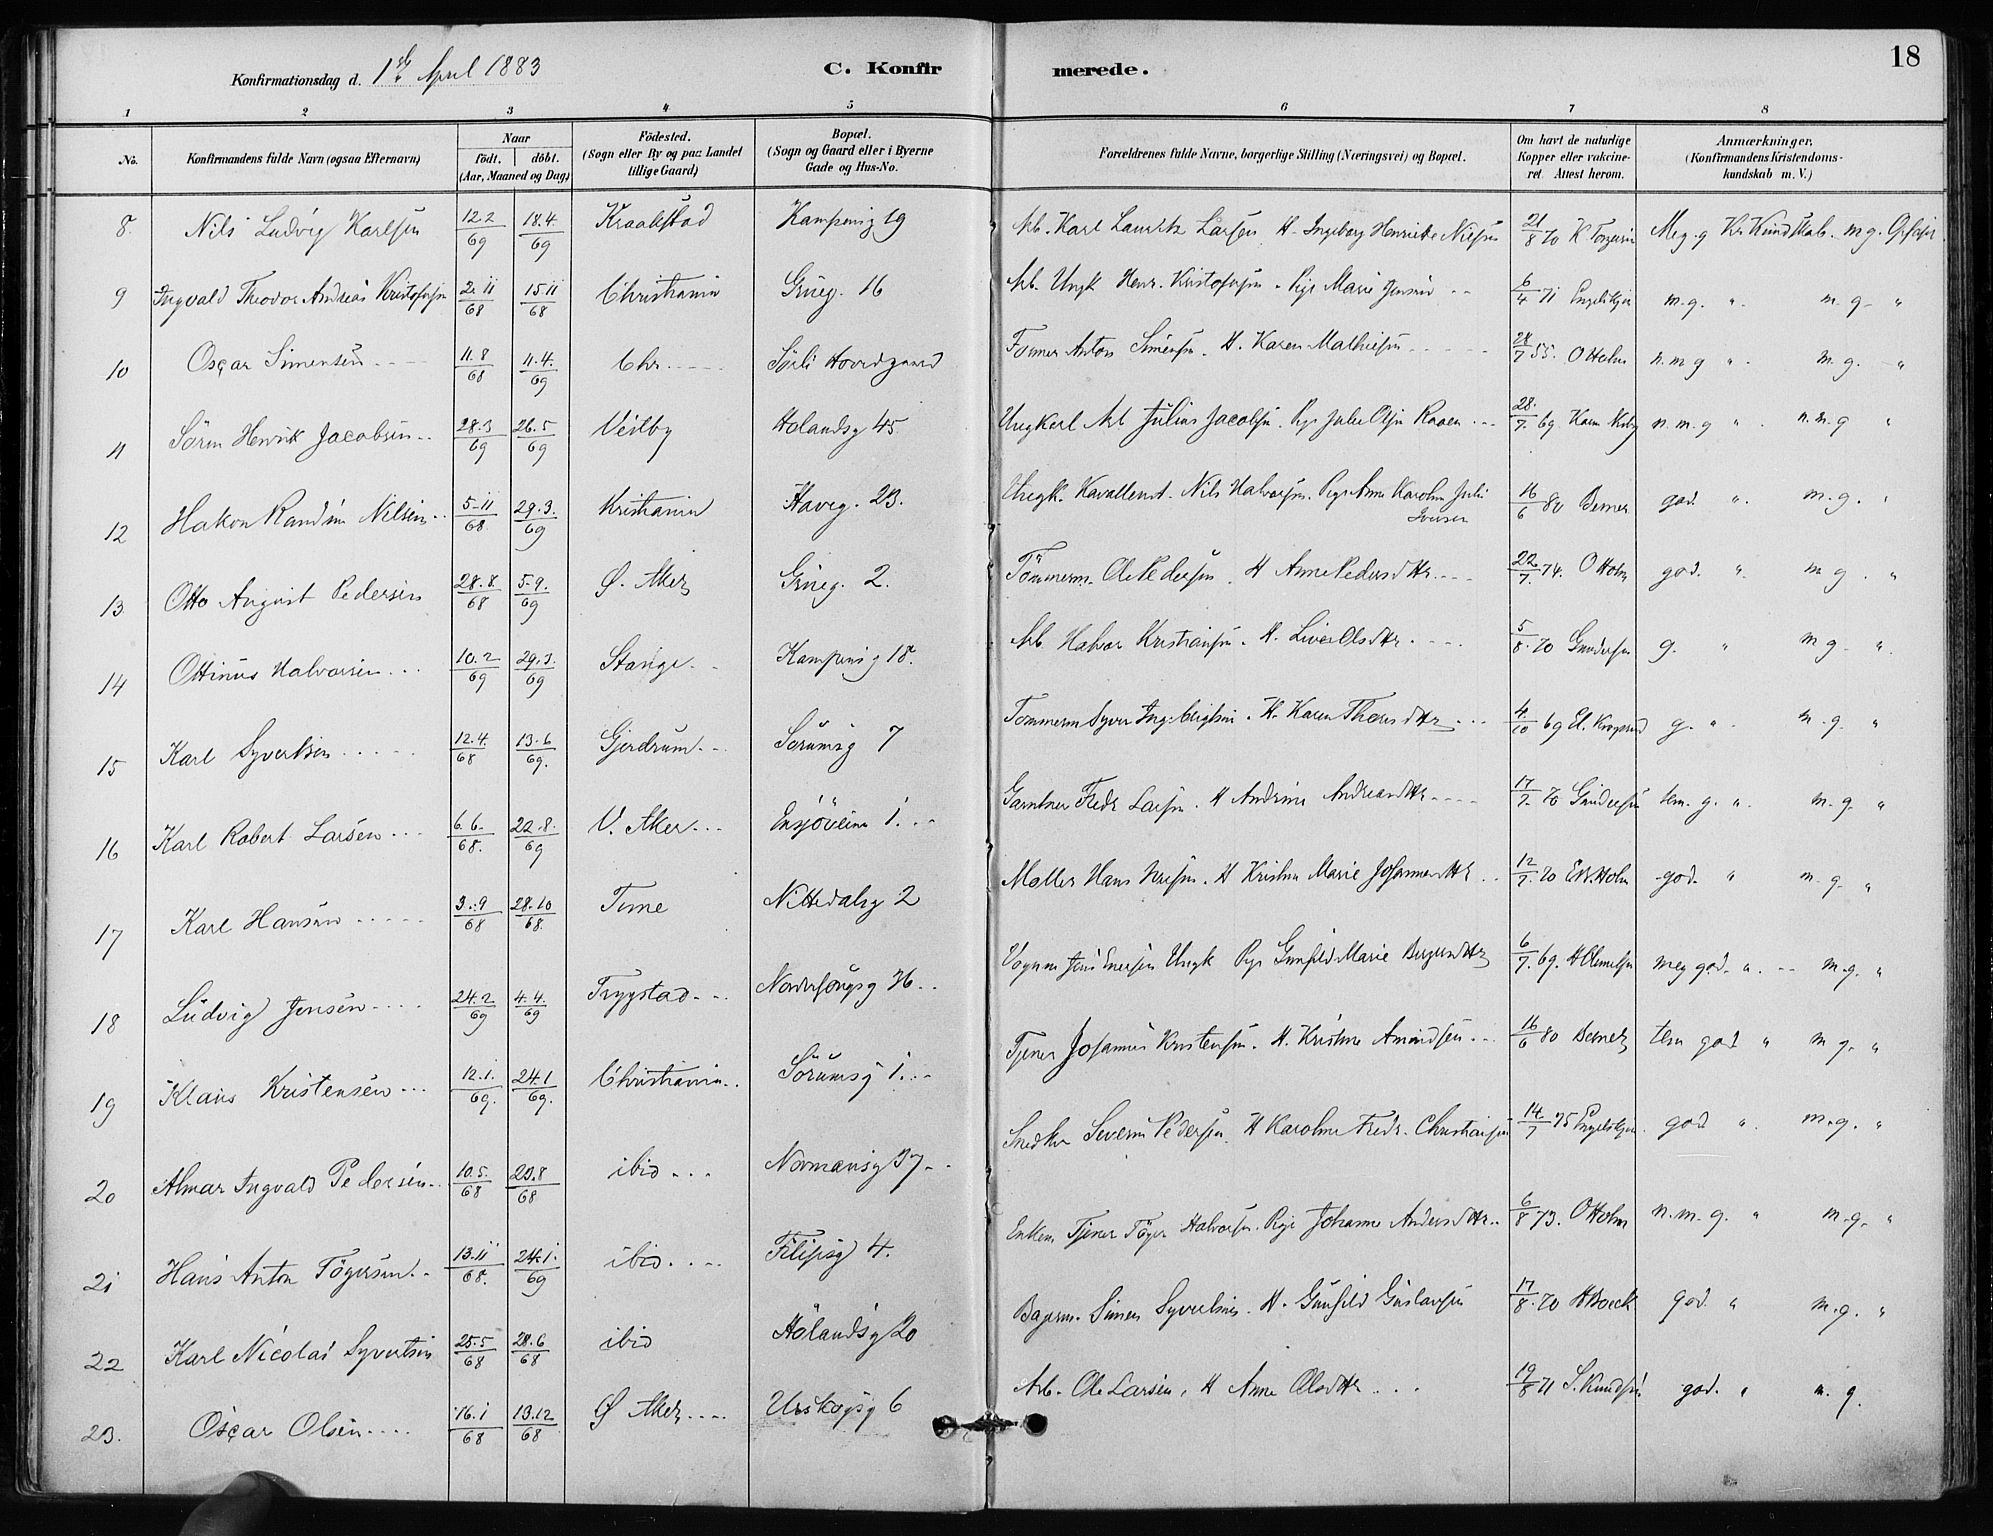 18
Konfirmationsdag d. 1ste April 1883 C. Konfirmerede.
1 2 3 4 5 6 7 8
No. Konfirmandens fulde Navn (ogsaa Efternavn) Naar födt. döbt. (Aar, Maaned og Dag) Födested. (Sogn eller By og paa Landet tillige Gaard) Bopæl. (Sogn og Gaard eller i Byerne Gade og Hus-No. Forældrenes fulde Navne, borgerlige Stilling (Næringsvei) og Bopæl. Om havt de naturlige Kopper eller vakcineret. Attest herom. Anmærkninger. (Konfirmandens Kristendomskundskab m. V.)
8. Nils Ludvig Karlsen 12.2/69 18.4./69 Kraakstad Kampensg 19 Arb. Karl Lauritz Larsen H. Ingeborg Henriette Nilsen 21/8 70 Meg. g Kr. Kundskab m g.
9 Ingvald Theodor Andreas Kristofersen 2.11/68 15.11/68 Christiania Grüneg. 16 Arb. Ungk Henr. Kristofersen. Pige Marie Jensen 6/4 71 m.g. " m g "
10 Oscar Simensen 11.8/68 11.4./69 Chr. Sörli Hovedgaard Former Anton Simensen. H. Karen Mathiesen 28/7 55. O Holm n.m g " m.g. "
11 Sören Henrik Jacobsen 28.3/69 26.5/69 Veilby Holandsg 45 Ungkarl Arb Julius Jacobsen. Pige Julie Olsen Raaen 28./7. 69 n.m.g " n.m.g "
12 Hakon Randin Nilsen 5.11/68 29.3./69 Kristiania Haveg. 23. Ungk. Kavallerist. Nils Halvorsen. Pige Anne Karoline Julie Iversen 16/6 80 Berner god. " m.g. "
13 Otto August Pedersen 28.8./68 5.9./69 Ø. Aker Grüneg. 2. Tömmerm. Ole Pedersen. H Anne Pedersdtr. 22/7. 74. O Holm god. " m g. "
14 Ottinus Halvorsen 10.2/69 29.3./69 Stange Kampensg 18. Arb. Halvor Kristiansen. H. Live Olsdtr. 5/8. 70 Gundersen g. " m g. "
15 Karl Syvertsen 12.4./68 13.6/69. Gjerdrum Sörumsg 7 Tömmerm Syver Ingebrigtsen. H. Karen Thoresdtr 4/10 69 g. " m.g. "
16 Karl Robert Larsen 6.6./68. 22.8./69 V. Aker Ensjöveien 1. Gartner Fredr Larsen. H Andrine Andreasdtr 17/7. 70 Gundersen tem. g. " m.g. "
17 Karl Hansen 3.9/68 28.10/68. Time Nittedalsg 2 Møller Hans Nilsen. H Kristine Marie Johannesdtr 12/7. 70 Holm god. " m.g. "
18 Ludvig Jensen 24.2/69 4.4./69 Trygstad Nordersöngsg 36 Vognm Jens Ungk Pige Gunhild Marie 6/7. 69. meg god. " m.g. "
19 Klaus Kristensen 12.1./69. 24.1/69. Christiania Sörumsg 1. Tjener Johannes Kristensen. H. Kristine Amundsen 16/6 80 Berner tem god " m g. "
20 Almar Ingvald Pedersen 10.5./68 20.8/68 ibid Normansg 37 Snedker Severin Pedersen. H Karoline Fredr. Christiansen 14/7 75 god " m.g. "
21 Hans Anton Tögersen 13.11/68. 24.1./69 ibid Filipsg 4. Enkem Tjener Töger Halvorsen. Pige Johanne Andersdtr 6/8 73. O Holm n.m.g. " m.g. "
22 Karl Nicolai Syvertsen 25.5/68 28.6/68 ibid Hölandsg 20 Bagerm. Simen Syvertsen. H. Gunhild Gustavsen 17/8. 70 H Boeck god. " m.g. "
23. Oscar Olsen 16.1/68 13.12/68 Ø Aker Urskogsg 6 Arb. Ole Larsen, H Anne Olsdtr. 19/8 71 S. Knudsen god. " m. g.